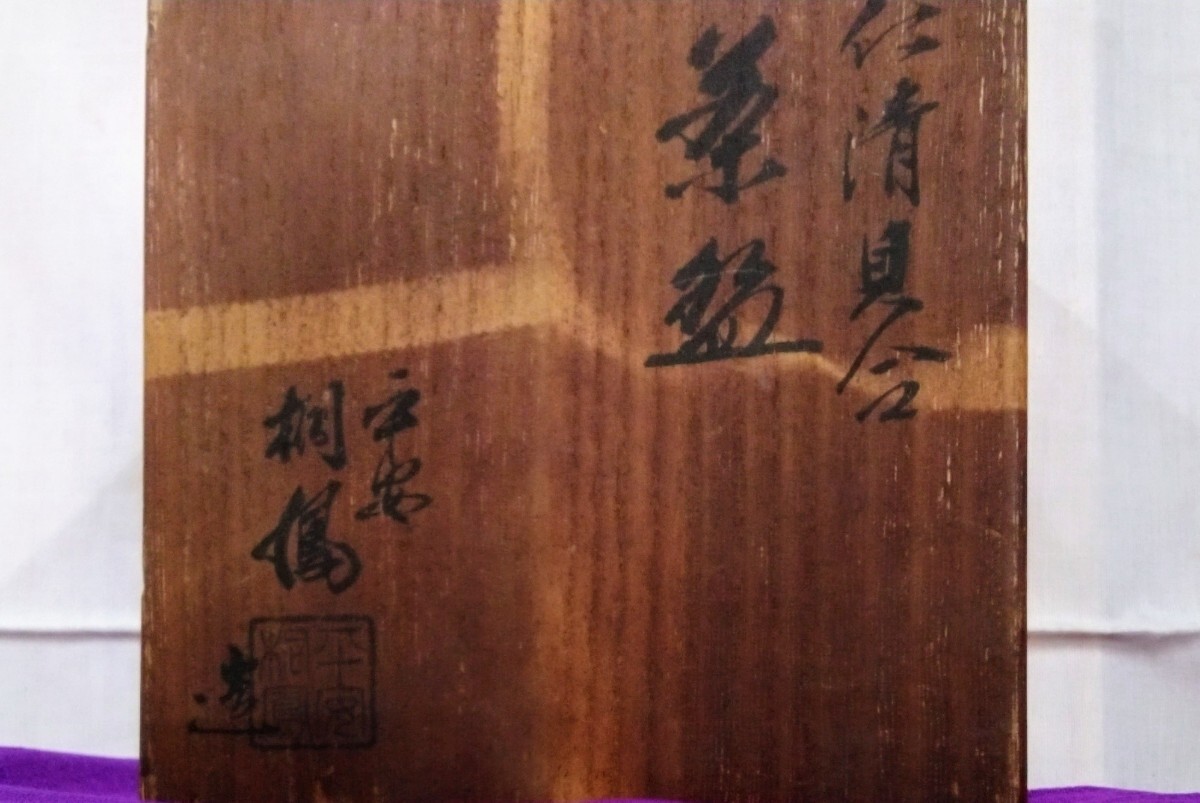 仁清貝合
茶盌
平安
桐鳳
造
平安
桐鳳